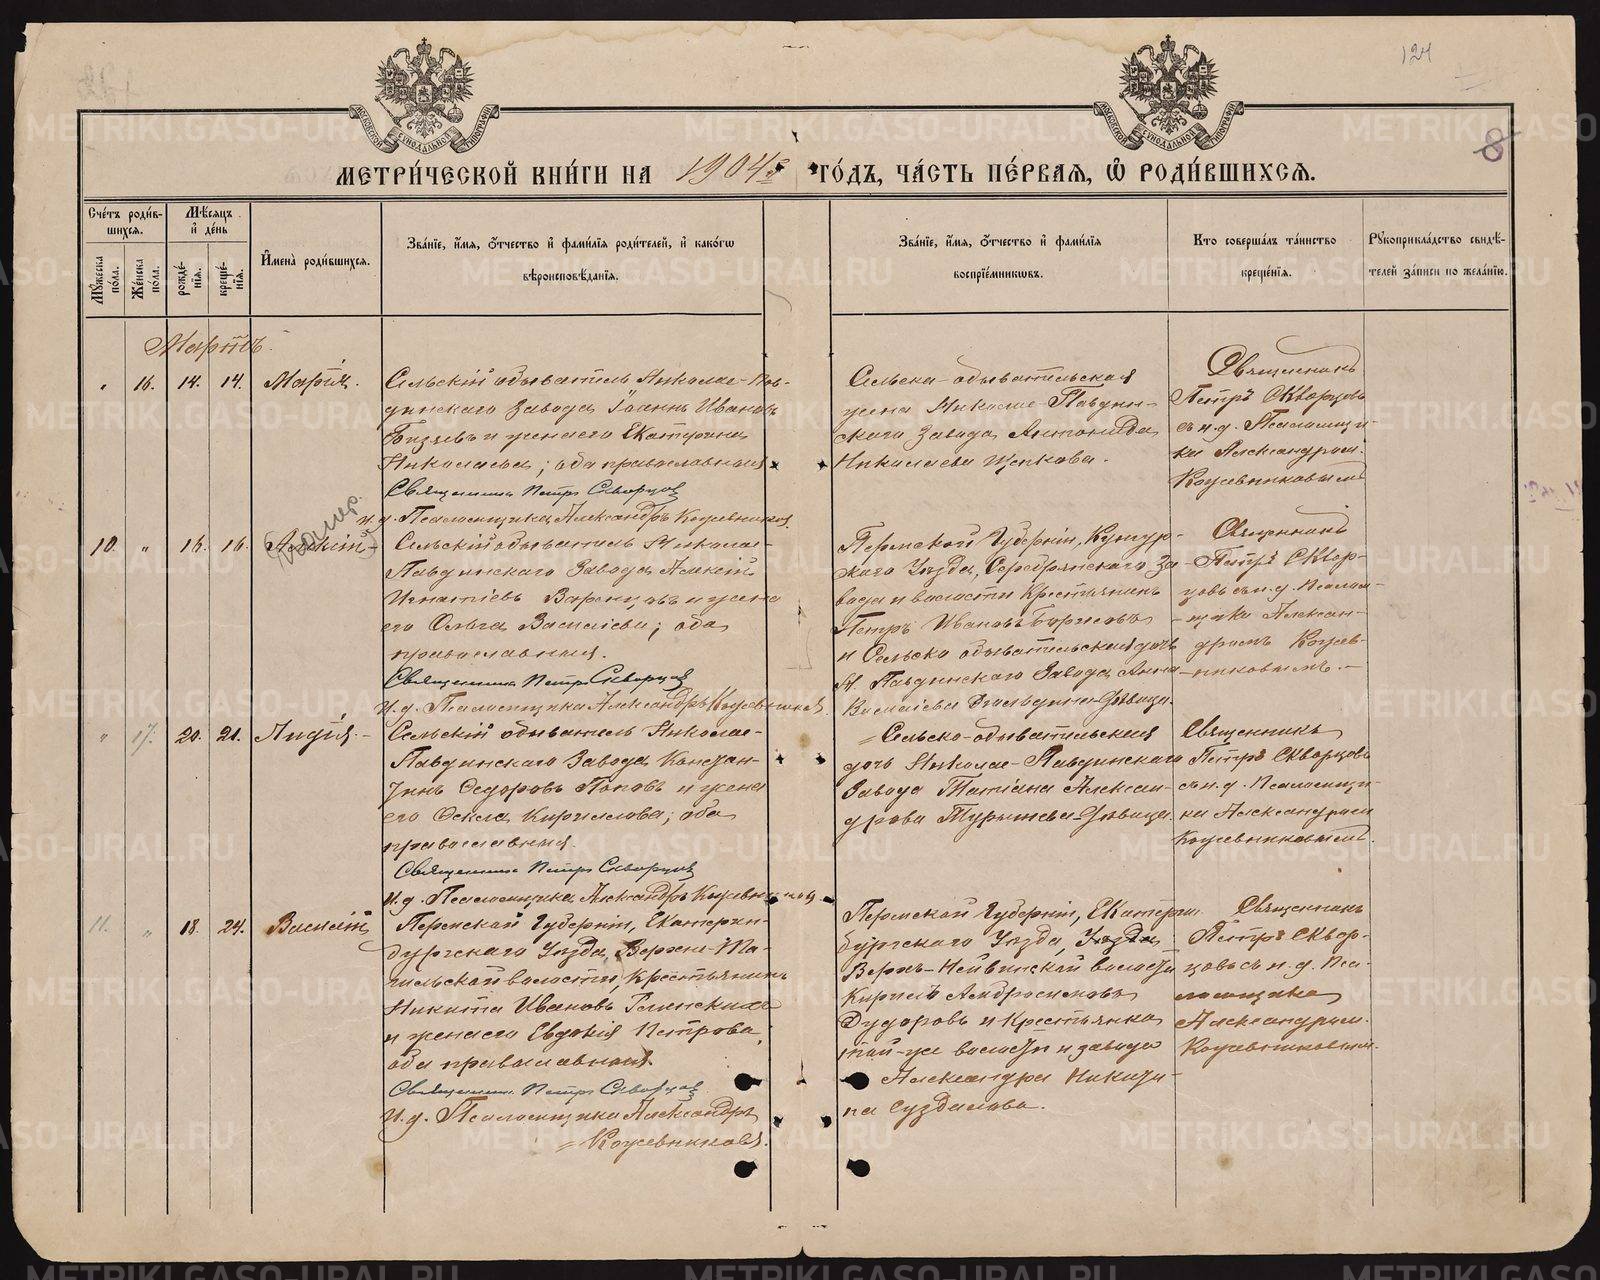 124
8
МЕТРИ́ЧЕСКОЙ КНИ́ГИ НА 1904й ГО́ДЪ, ЧА́СТЬ ПЕ́РВАЯ, Ѡ РОДИ́ВШИХСЯ.
Сче́тъ роди́в-
шихся.
Му́жеска по́ла.
Же́нска по́ла.
Мѣ́сяцъ и де́нь
рожде́нїя.
креще́нїя.
Имена̀ роди́вшихся.
Зва́нїе, и́мя, о́тчество и фами́лїя роди́телей, и како́гѡ
вѣроисповѣ́данїя.
Зва́нїе, и́мя, о́тчество и фами́лїя
воспрїе́мниковъ.
Кто соверша́лъ та́инство
креще́нїя.
Рукоприкла́дство свидѣ́-
телей за́писи по жела́нїю.
Мартъ.
" 16. 14. 14. Марія.
Сельскій обыватель Николае-Пав-
динскаго Завода Іоаннъ Ивановъ
и жена его Екатерина
Николаева; оба православныя
Священникъ Петръ Скворцов
и.д. Псаломщика Александръ Кожевниковъ.
Сельско-обывательская
жена Николае-Павдин-
скаго Завода Антонида
Николаева Щепкова.
Священникъ
Петръ Скворцовъ
съ и.д. Псаломщи-
ка Александром
Кожевниковымъ
10. " 16. 16. Алексій
Сельскій обыватель Николае-
Павдинскаго Завода Алексій
Игнатіевъ и жена
его Ольга Василіева; оба
православныя.
Священникъ Петръ Скворцов
И.д. Псаломщика Александръ Кожевниковъ.
Пермской Губерніи, Кунгур-
скаго Уѣзда, Серебрянскаго За-
вода и волости Крестьянинъ
Петръ Ивановъ Борисовъ
и Сельско обывательская дочь
Н. Павдинскаго Завода Анна
Василіева девица.
Священникъ
Петръ Сквор-
цовъ съ и.д. Псалом-
щика Алексан-
дромъ Кожев-
никовымъ.
" 17. 20. 21. Лидія.
Сельскій обыватель Николае-
Павдинскаго Завода Констан-
тинъ Ѳедоровъ Поповъ и жена
его Ѳекла Кириллова; оба
православныя.
Священникъ Петръ Скворцов
И.д. Псаломщика Александръ Кожевниковъ
Сельско-обывательская
дочь Николае-Павдинскаго
Завода Татіана Алексан-
дрова девица.
Священникъ
Петръ Скворцовъ
съ и.д. Псаломщи-
ка Александромъ
Кожевниковымъ.
11. " 18. 24. Василій
Пермской Губерніи, Екатерин-
бургскаго Уѣзда, Верхне-Та-
гильской волости, Крестьянинъ
Никита Ивановъ
и жена его Евдокія Петрова,
оба православныя.
Священникъ Петръ Скворцов
И.д. Псаломщика Александръ
Кожевниковъ.
Пермской Губерніи, Екатерин-
бургскаго Уѣзда, Уѣзда
Верхъ-Нейвинской волости
Кирилъ Амвросимовъ
Дудоровъ и Крестьянка
той-же волости и завода
Александра Никити-
на Суздалова.
Священникъ
Петръ Сквор-
цовъ съ и.д. Пса-
ломщика
Александром
Кожевниковым.
METRIKI.GASO-URAL.RU